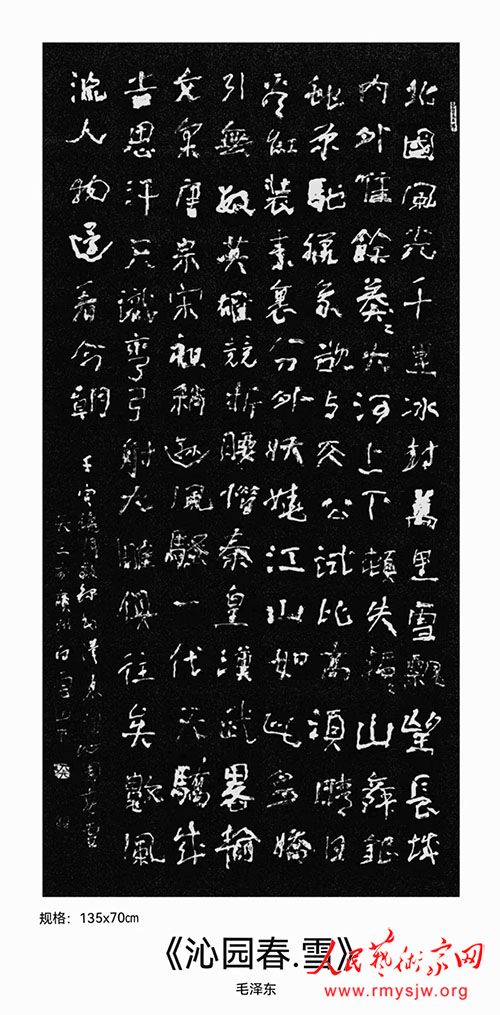 北國風光千里冰封萬里雪飄望長城
内外惟餘莽〻大河上下頓失滔〻山舞銀
蛇原馳蠟象欲与天公試比高須晴日
看紅裝素裹分外妖嬈江山如此多嬌
引無數英雄競折腰惜秦皇漢武畧輸
文采唐宗宋祖稍遜風騷一代天驕成
吉思汗只識彎弓射大雕俱往矣數風
流人物還看今朝
壬寅
白雲山下
规格：135x70㎝
《沁园春.雪》
毛泽东
人民藝術家网
www.rmysjw.org